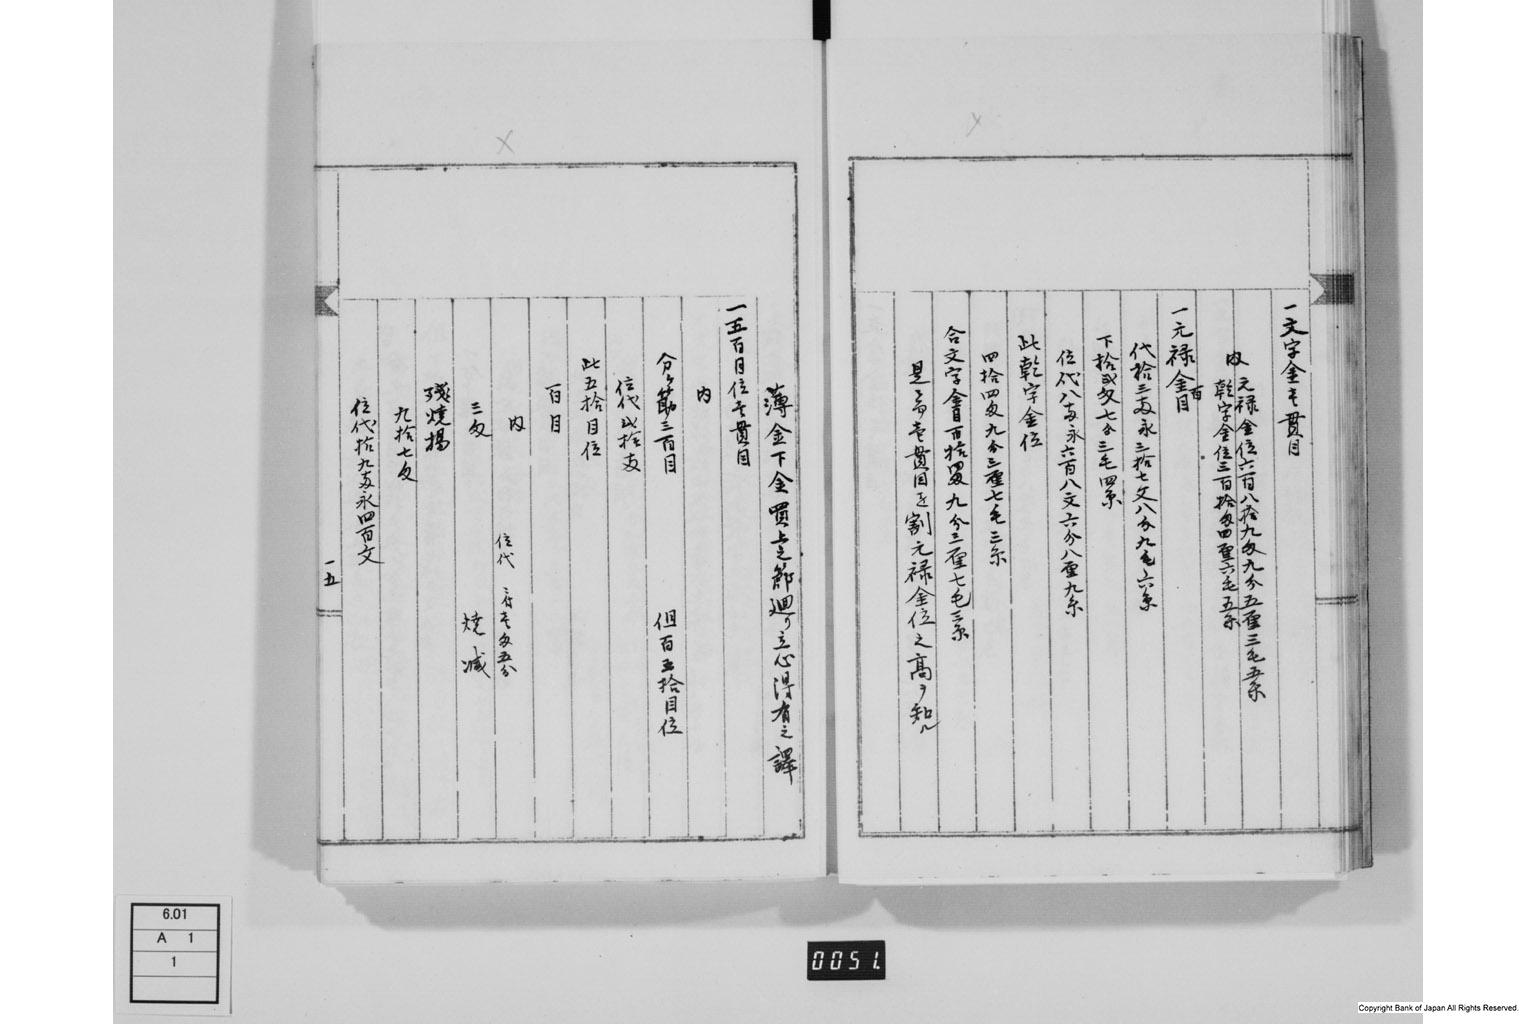 一文字金壱貫目
内 元禄金位六百八拾九匁九分五厘三毛五糸
乾字金位三百拾匁四厘六毛五糸
一元禄金百目
代拾三両永三拾七文八分九毛六糸
下拾弐匁七分三毛四糸
位代八両永六百八文六分八厘九糸
此乾字金位
四拾四匁九分三厘七毛三糸
合文字金目百拾四匁九分三厘七毛三糸
是ニ而壱貫目を割元禄金位之高ヲ知ル
薄金下金買上之節廻り立心得有之譯
一五百目位壱貫目
内
分ヶ筋三百目 但百五拾目位
位代弐拾両
此五拾目位
百目
内 位代 両壱匁五分
三匁 焼減
残焼揚
九拾七匁
位代拾九両永四百文
一五
6.01
A 1
1
0051.
Copyright Bank of Japan All Rights Reserved.